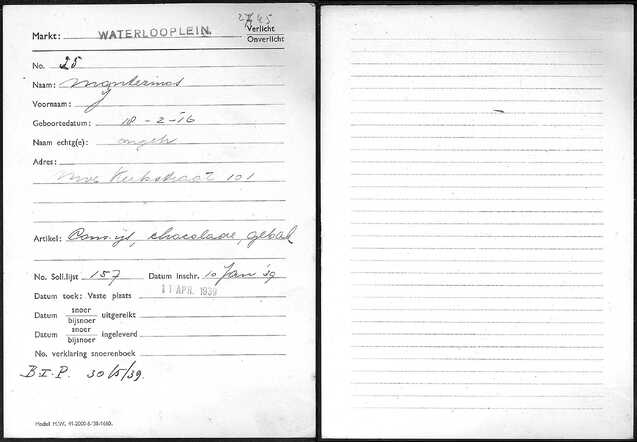 Markt: WATERLOOPLEIN. Verlicht
Onverlicht
No. 25
Naam: Mynterinos
Voornaam: J
Geboortedatum: 18-2-16
Naam echtg(e): ongeh
Adres:
Nwe Kerkstraat 101
Artikel: Cons.ijs, chocolade, gebak
No. Soll.lijst 157 Datum inschr. 10 Jan '39
Datum toek: Vaste plaats 11 APR. 1939
Datum snoer/bijsnoer uitgereikt
Datum snoer/bijsnoer ingeleverd
No. verklaring snoerenboek
B.I.P. 30/5/39.
Model M.W. 41-2000-8-'38-1680.